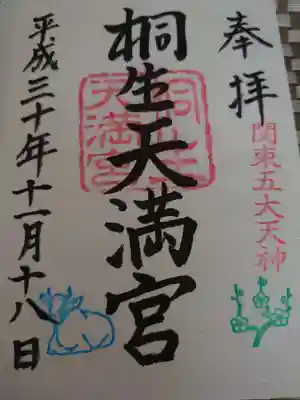 奉拝
関東五大天神
桐生天満宮
桐生天満宮
平成三十年十一月十八日